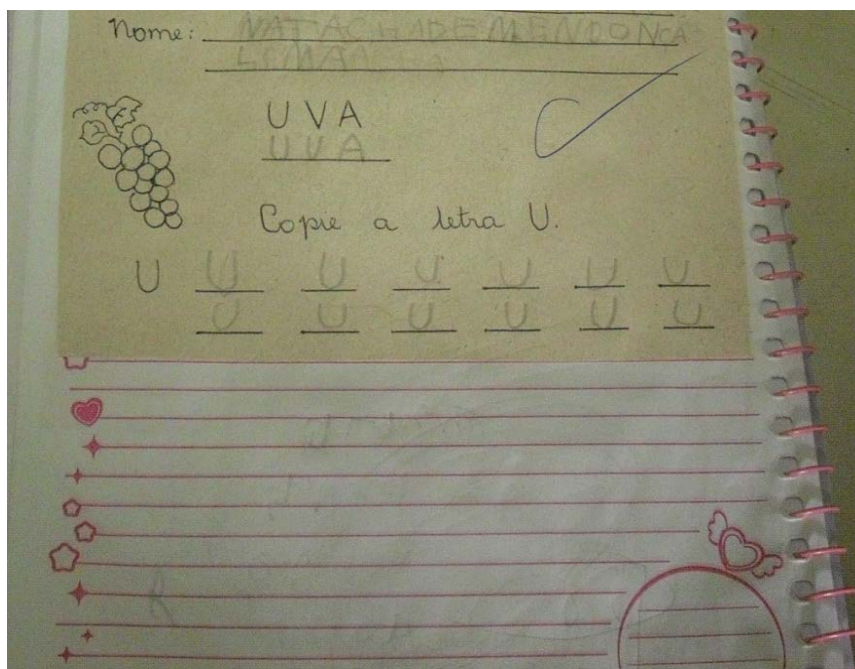 Nome: NATACHADEMENDONCA
LIMA
UVA
UVA
Copie a letra U.
U U U U U U U
U U U U U U